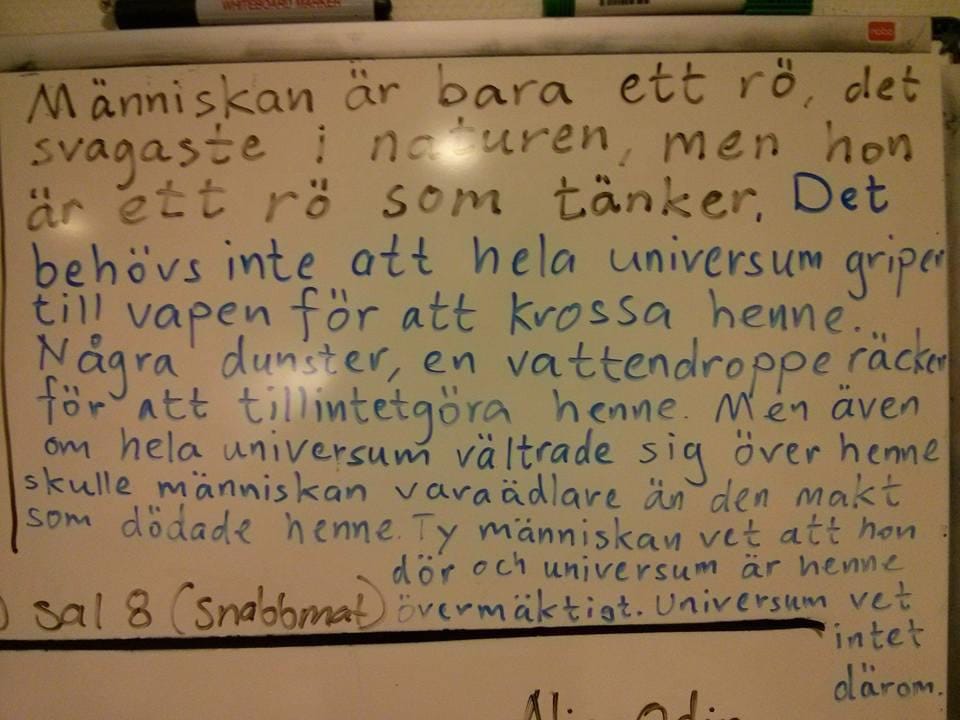 WHITEBOARD MARKER
nobo
Människan är bara ett rö, det
svagaste i naturen, men hon
är ett rö som tänker. Det
behövs inte att hela universum griper
till vapen för att krossa henne.
Några dunster, en vattendroppe räcker
för att tillintetgöra henne. Men även
om hela universum vältrade sig över henne
skulle människan varaädlare än den makt
som dödade henne. Ty människan vet att hon
dör och universum är henne
övermäktigt. Universum vet
intet
därom.
) sal 8 (Snabbmat)